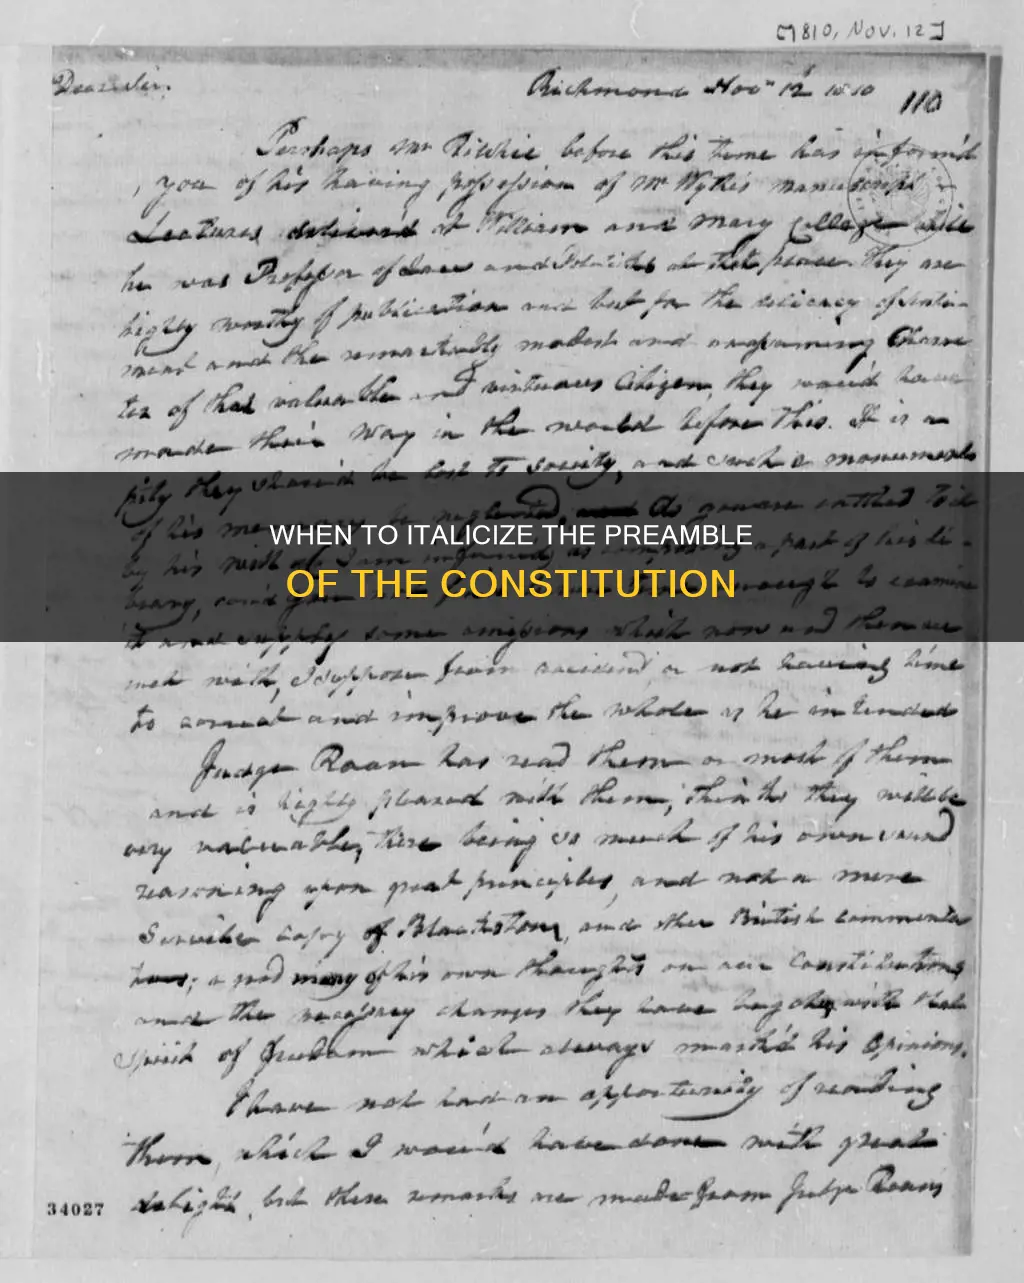 [1810, Nov. 12]
Dear Sir. Richmond Nov 12 1810
110
Perhaps Mr Ritchie before this time has inform'd
you of his having possession of Mr Wythe's manuscript
Lectures delivered at William and Mary College while
he was Professor of Law and Politicks at that place. they are
highly worthy of publication and but for the delicacy of senti-
ment and the remarkably modest and unassuming Charac
ter of that valuable and virtuous Citizen, they would have
made their way in the world before this. It is a
pity they should be lost to society, and such a monument
of his be neglected, As you are entitled to it
WHEN TO ITALICIZE THE PREAMBLE
by his will as I am informed, as composing a part of his li-
OF THE CONSTITUTION
brary, could you enough to examine
it and supply some omissions which now and then are
met with, I suppose from accident, or not having time
to correct and improve the whole as he intended
Judge Roan has read them or most of them
and is highly pleased with them, thinks they will be
very valuable, there being so much of his own sound
reasoning upon great principles, and not a mere
Servile copy of Blackstone, and other British commenta
tors; a good many of his own thoughts on our Constitutions
and the necessary changes they have begotten, with that
spirit of freedom which always mark'd his Opinions.
I have not had an opportunity of reading
them, which I would have done with great
delight, but these remarks are made from Judge Roan's
34027